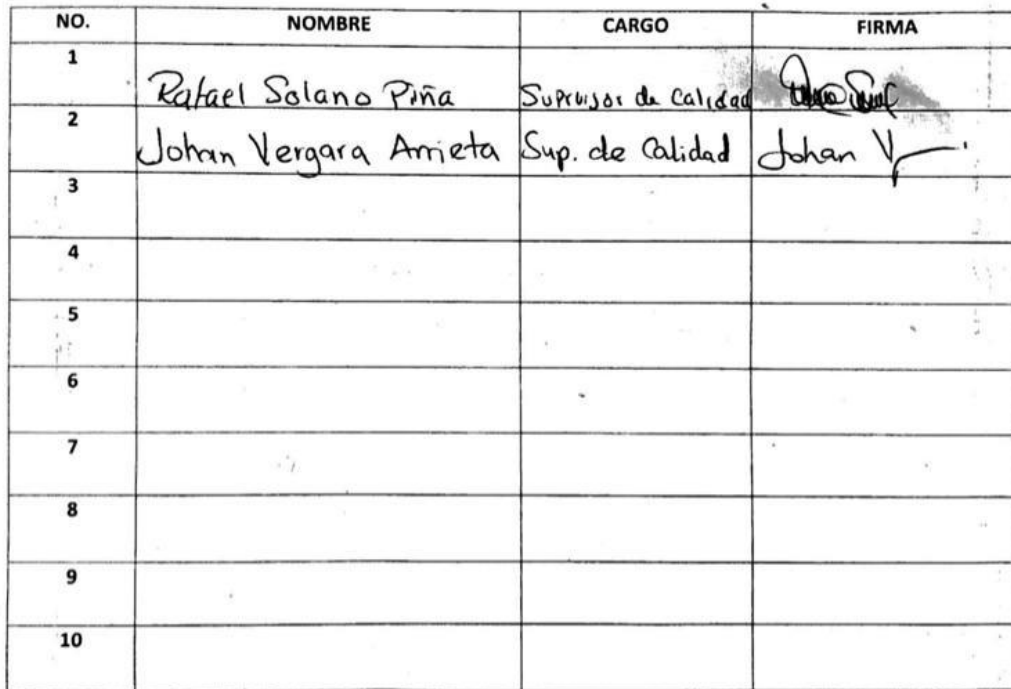 NO. NOMBRE CARGO FIRMA
1 Rafael Solano Piña Supervisor de Calidad
2 Johan Vergara Arrieta Sup. de Calidad Johan V
3
4
5
6
7
8
9
10